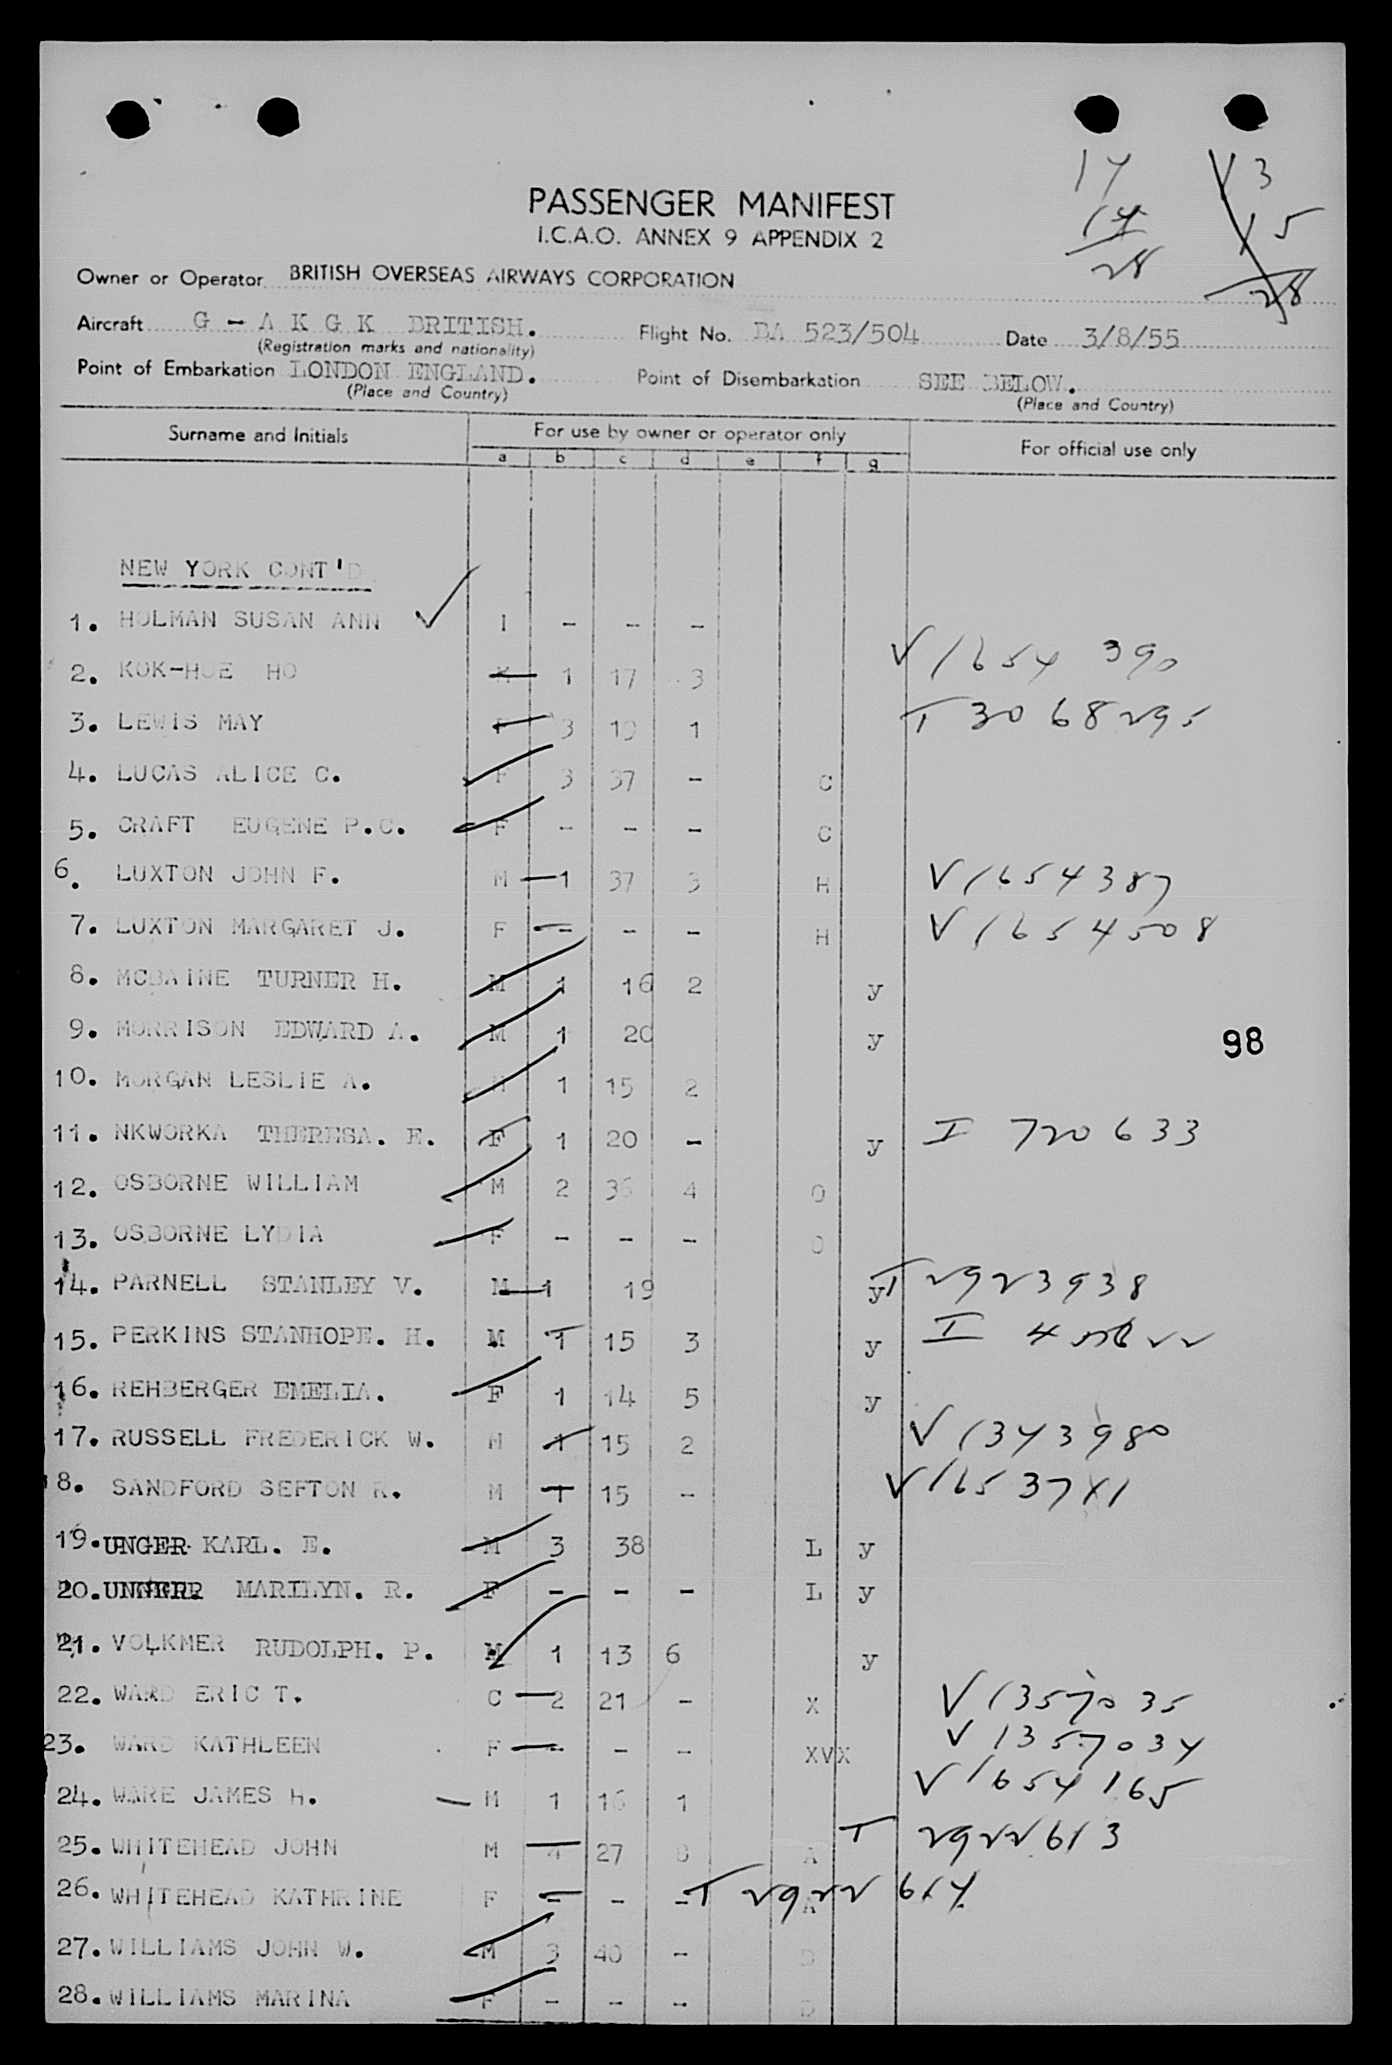 17 13
14 15
28 28
PASSENGER MANIFEST
I.C.A.O. ANNEX 9 APPENDIX 2
Owner or Operator BRITISH OVERSEAS AIRWAYS CORPORATION
Aircraft G - A K G K BRITISH. Flight No. BA 523/504 Date 3/8/55
(Registration marks and nationality)
Point of Embarkation LONDON ENGLAND. Point of Disembarkation SEE BELOW.
(Place and Country) (Place and Country)
Surname and Initials For use by owner or operator only For official use only
a b c d e f g
NEW YORK CONT'D
1. HOLMAN SUSAN ANN I - - -
2. KOK-HOE HO M 1 17 3 V 1654 390
3. LEWIS MAY F 3 19 1 T 3068295
4. LUCAS ALICE C. F 3 37 - C
5. CRAFT EUGENE P.C. F - - - C
6. LUXTON JOHN F. M 1 37 3 H V1654387
7. LUXTON MARGARET J. F - - - H V1654508
8. MCBAINE TURNER H. M 1 16 2 y
9. MORRISON EDWARD A. M 1 20 y
98
10. MORGAN LESLIE A. M 1 15 2
11. NKWORKA THERESA. E. F 1 20 - y I 720633
12. OSBORNE WILLIAM M 2 36 4 O
13. OSBORNE LYDIA F - - - O
14. PARNELL STANLEY V. M 1 19 y T 2923938
15. PERKINS STANHOPE. H. M 1 15 3 y I
16. REHBERGER EMELIA. F 1 14 5 y
17. RUSSELL FREDERICK W. M 1 15 2 V 1343980
18. SANDFORD SEFTON R. M 1 15 - V1653741
19. UNGER KARL. E. M 3 38 L y
20. UNGER MARILYN. R. F - - - L y
21. VOLKMER RUDOLPH. P. M 1 13 6 y
22. WARD ERIC T. C 2 21 - X V1357035
23. WARD KATHLEEN F - - - XVX V1357034
24. WARE JAMES H. M 1 16 1 V1654165
25. WHITEHEAD JOHN M 4 27 8 A T 2922613
26. WHITEHEAD KATHRINE F - - - A T 2922614
27. WILLIAMS JOHN W. M 3 40 - D
28. WILLIAMS MARINA F - - - D